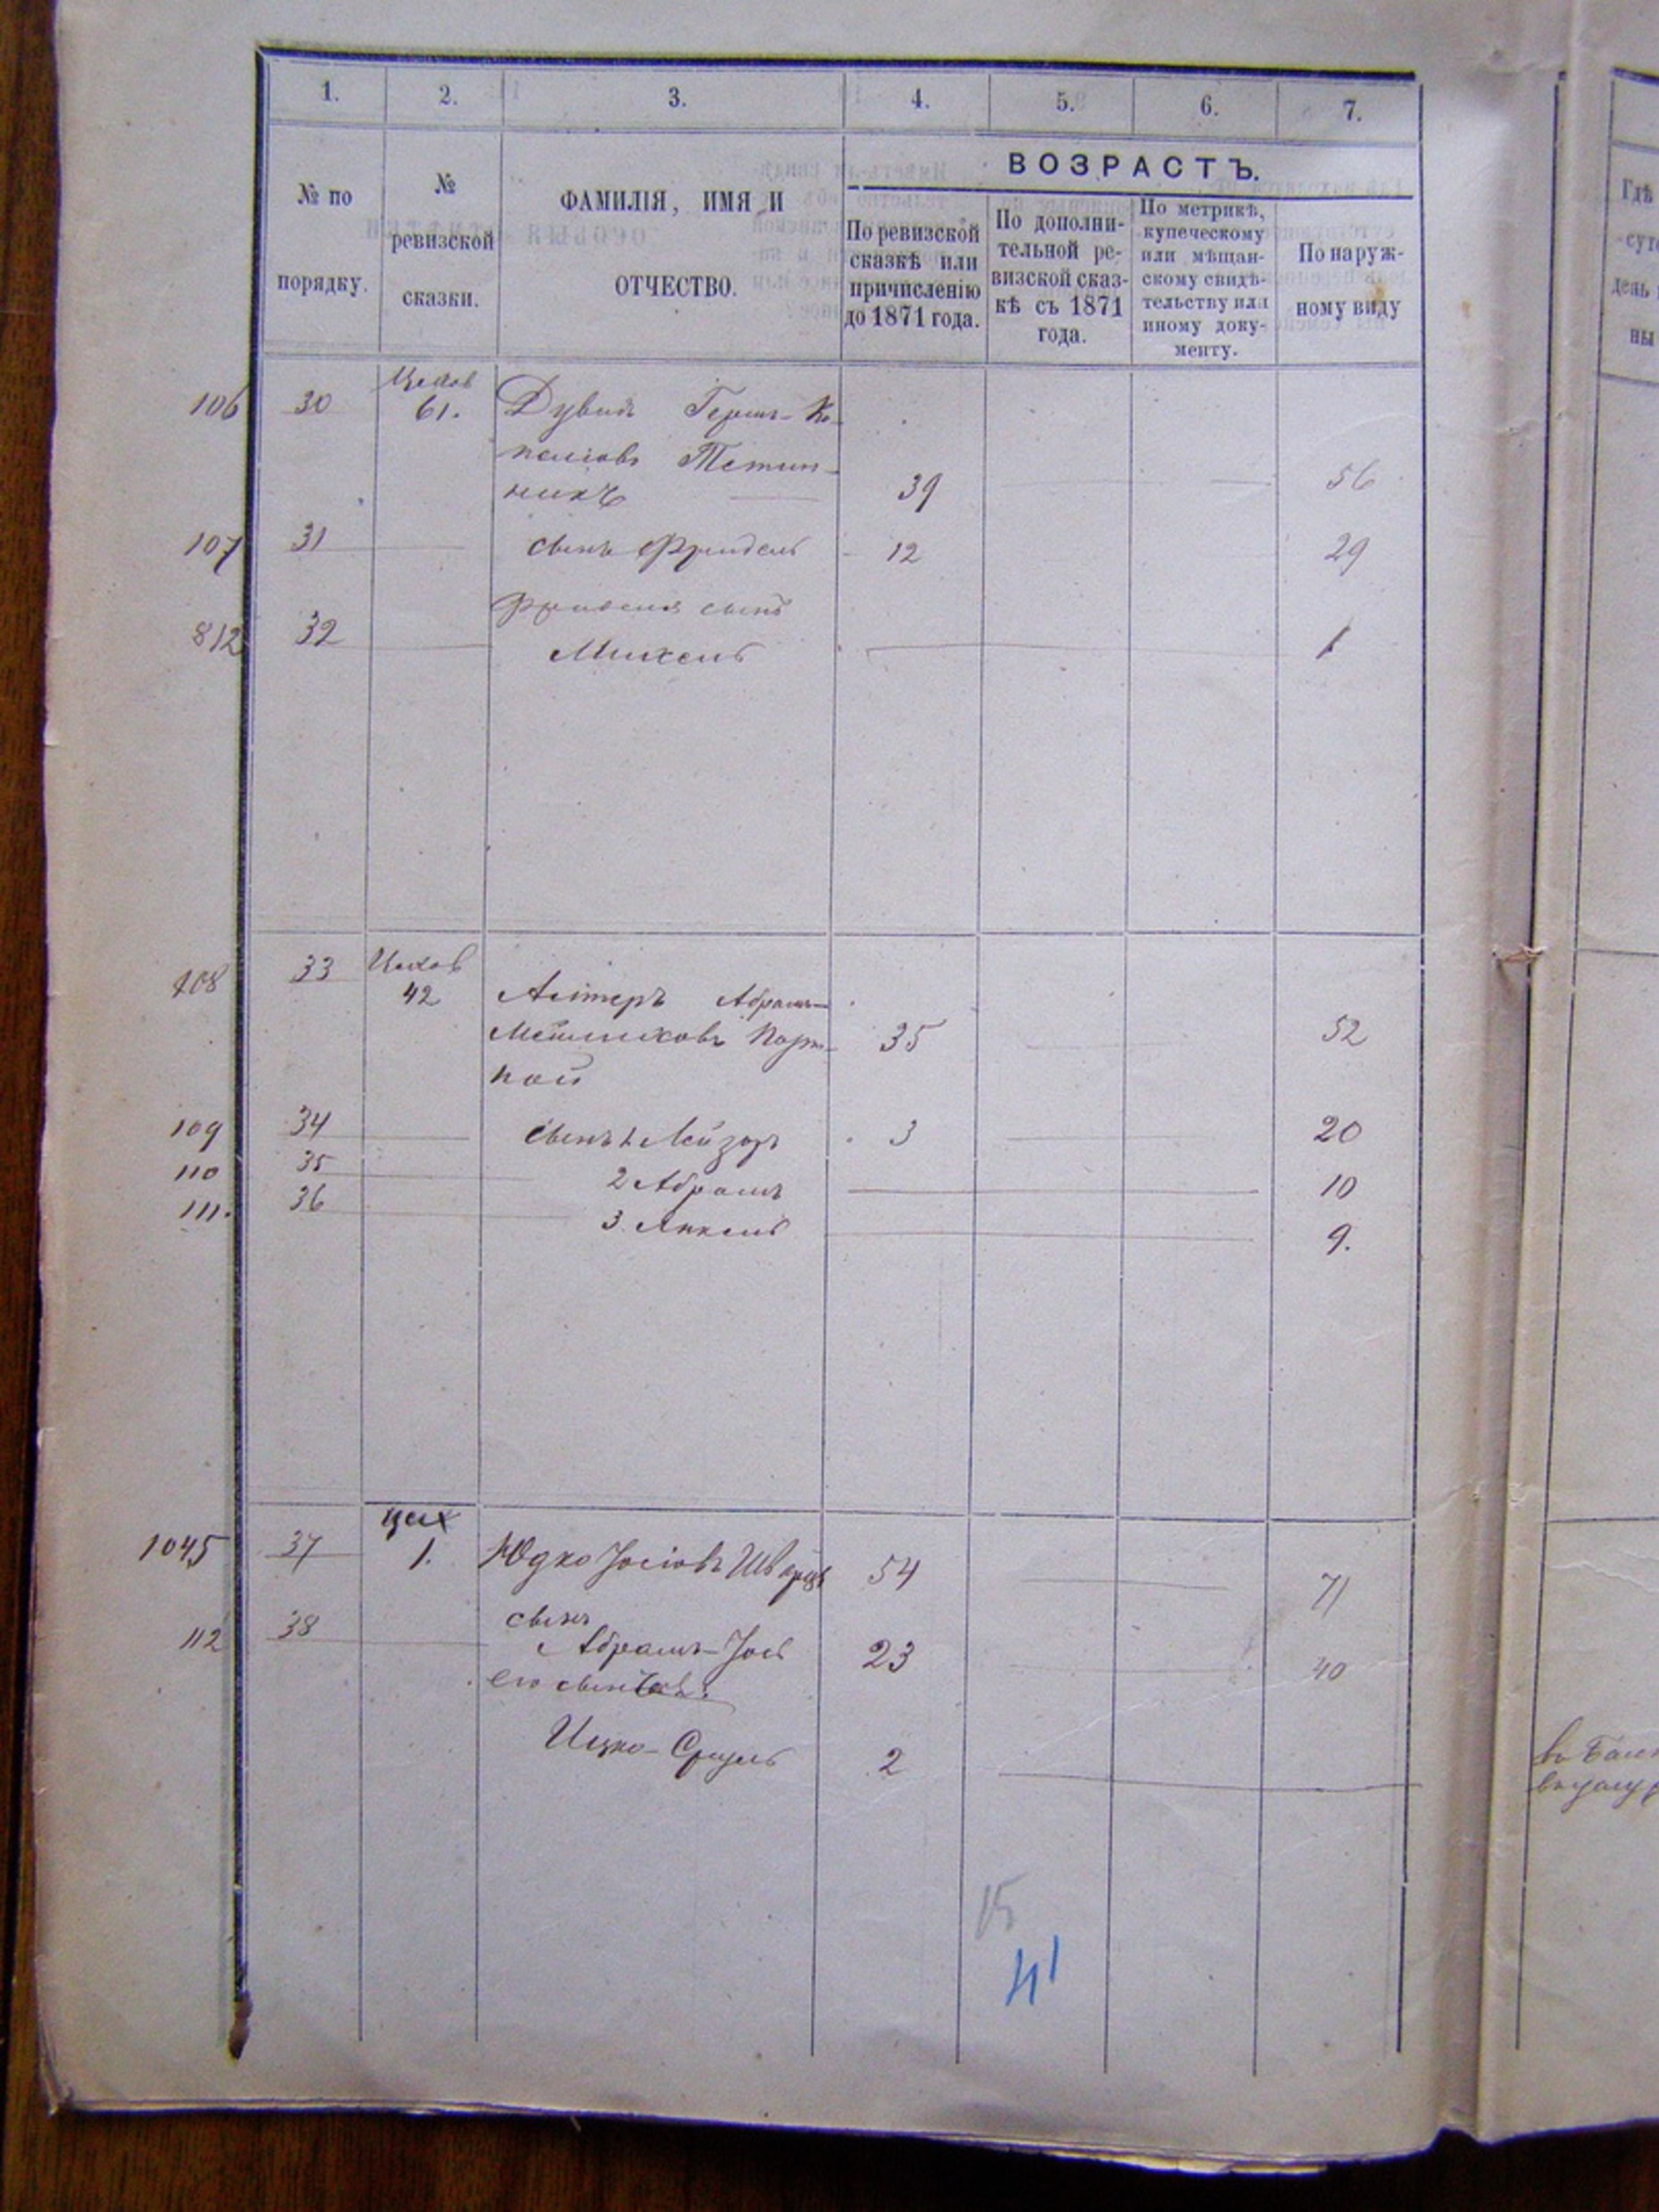 1. 2. 3. 4. 5. 6. 7.
№ по порядку.
№ ревизской сказки.
ФАМИЛІЯ, ИМЯ И ОТЧЕСТВО.
ВОЗРАСТЪ.
По ревизской
сказкѣ или
причисленію
до 1871 года.
По дополни-
тельной ре-
визской сказ-
кѣ съ 1871
года.
По метрикѣ,
купеческому
или мѣщан-
скому свидѣ-
тельству или
иному доку-
менту.
По наруж-
ному виду
Цехов
106 30 61. Дувидъ Гершъ-Ко-
пелiовъ
39 56
107 31 сынъ Фридель 12 29
Фриделя сынъ
812 32 Михель 1
108 33 Цехов
42 Алтеръ Абрамъ-
Портной
35 52
109 34 сынъ 1 Лейзоръ 3 20
110 35 2 Абрамъ 10
111. 36 3. Янкель 9.
цех
1045 37 1. Юдко Іосіовъ Шварцъ 54 71
сынъ
112 38 Абрамъ-Іось 23 40
его сынъ
Ицко-Сруль 2
15
41
Гдѣ